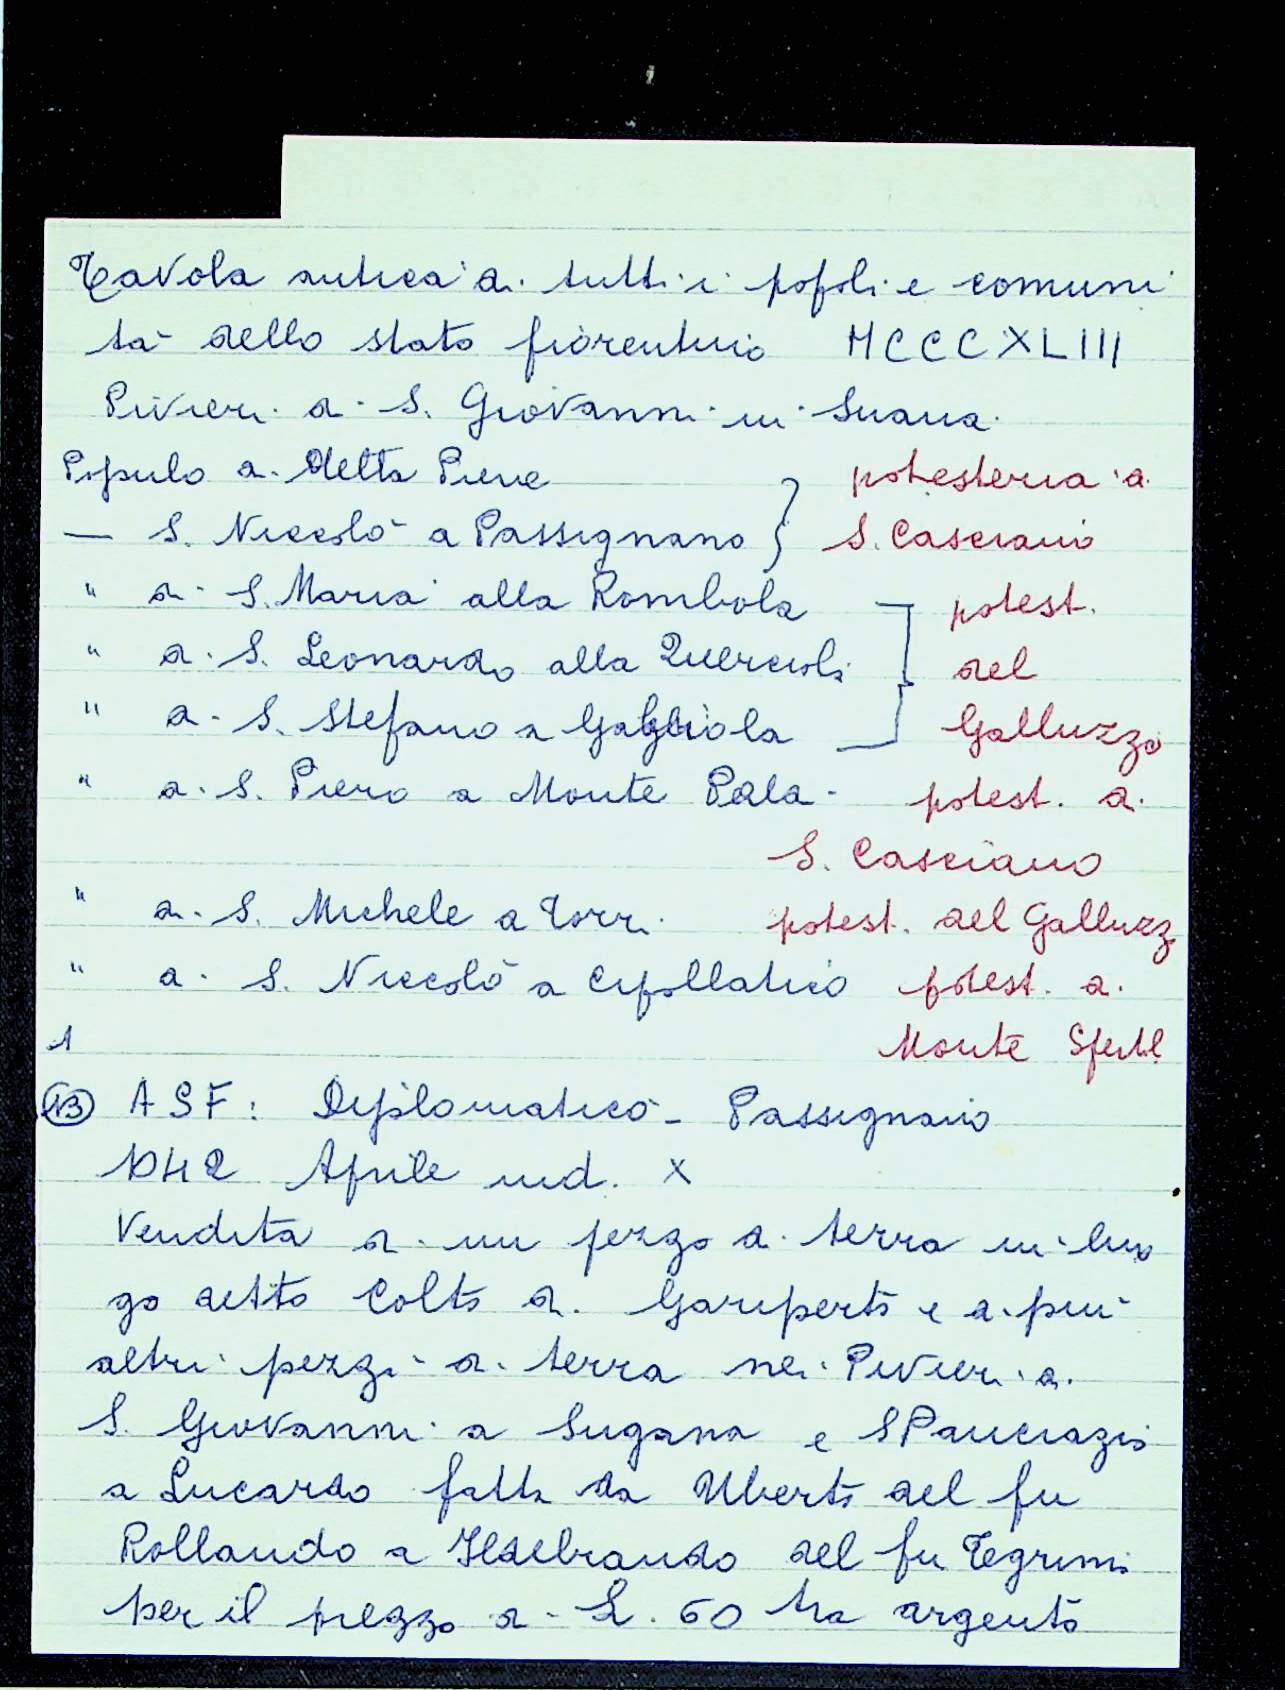 Tavola antica di tutti i popoli e comuni
tà dello stato fiorentino MCCCXLIII
Pivieri di S. Giovanni in Suana
Populo di detta Pieve potesteria di
— S. Niccolò a Passignano S. Casciano
" di S. Maria alla Rombola potest.
" di S. Leonardo alla Quercioli del
" di S. Stefano a Gabbiola Galluzzo
" di S. Piero a Monte Pala potest. di
S. Casciano
" di S. Michele a Torri potest. del Galluzz
" di S. Niccolò a Cipollatico potest. di
Monte Spertl
1
ASF: Diplomatico - Passignano
1042 Aprile ind. X
Vendita di un pezzo di terra in luo
go detto Colto di Gariperto e di più
altri pezzi di terra nei Pivieri di
S. Giovanni a Sugana e S Pancrazio
a Lucardo fatta da Uberto del fu
Rollando a Ildebrando del fu Tegrimi
per il prezzo di L. 60 tra argento